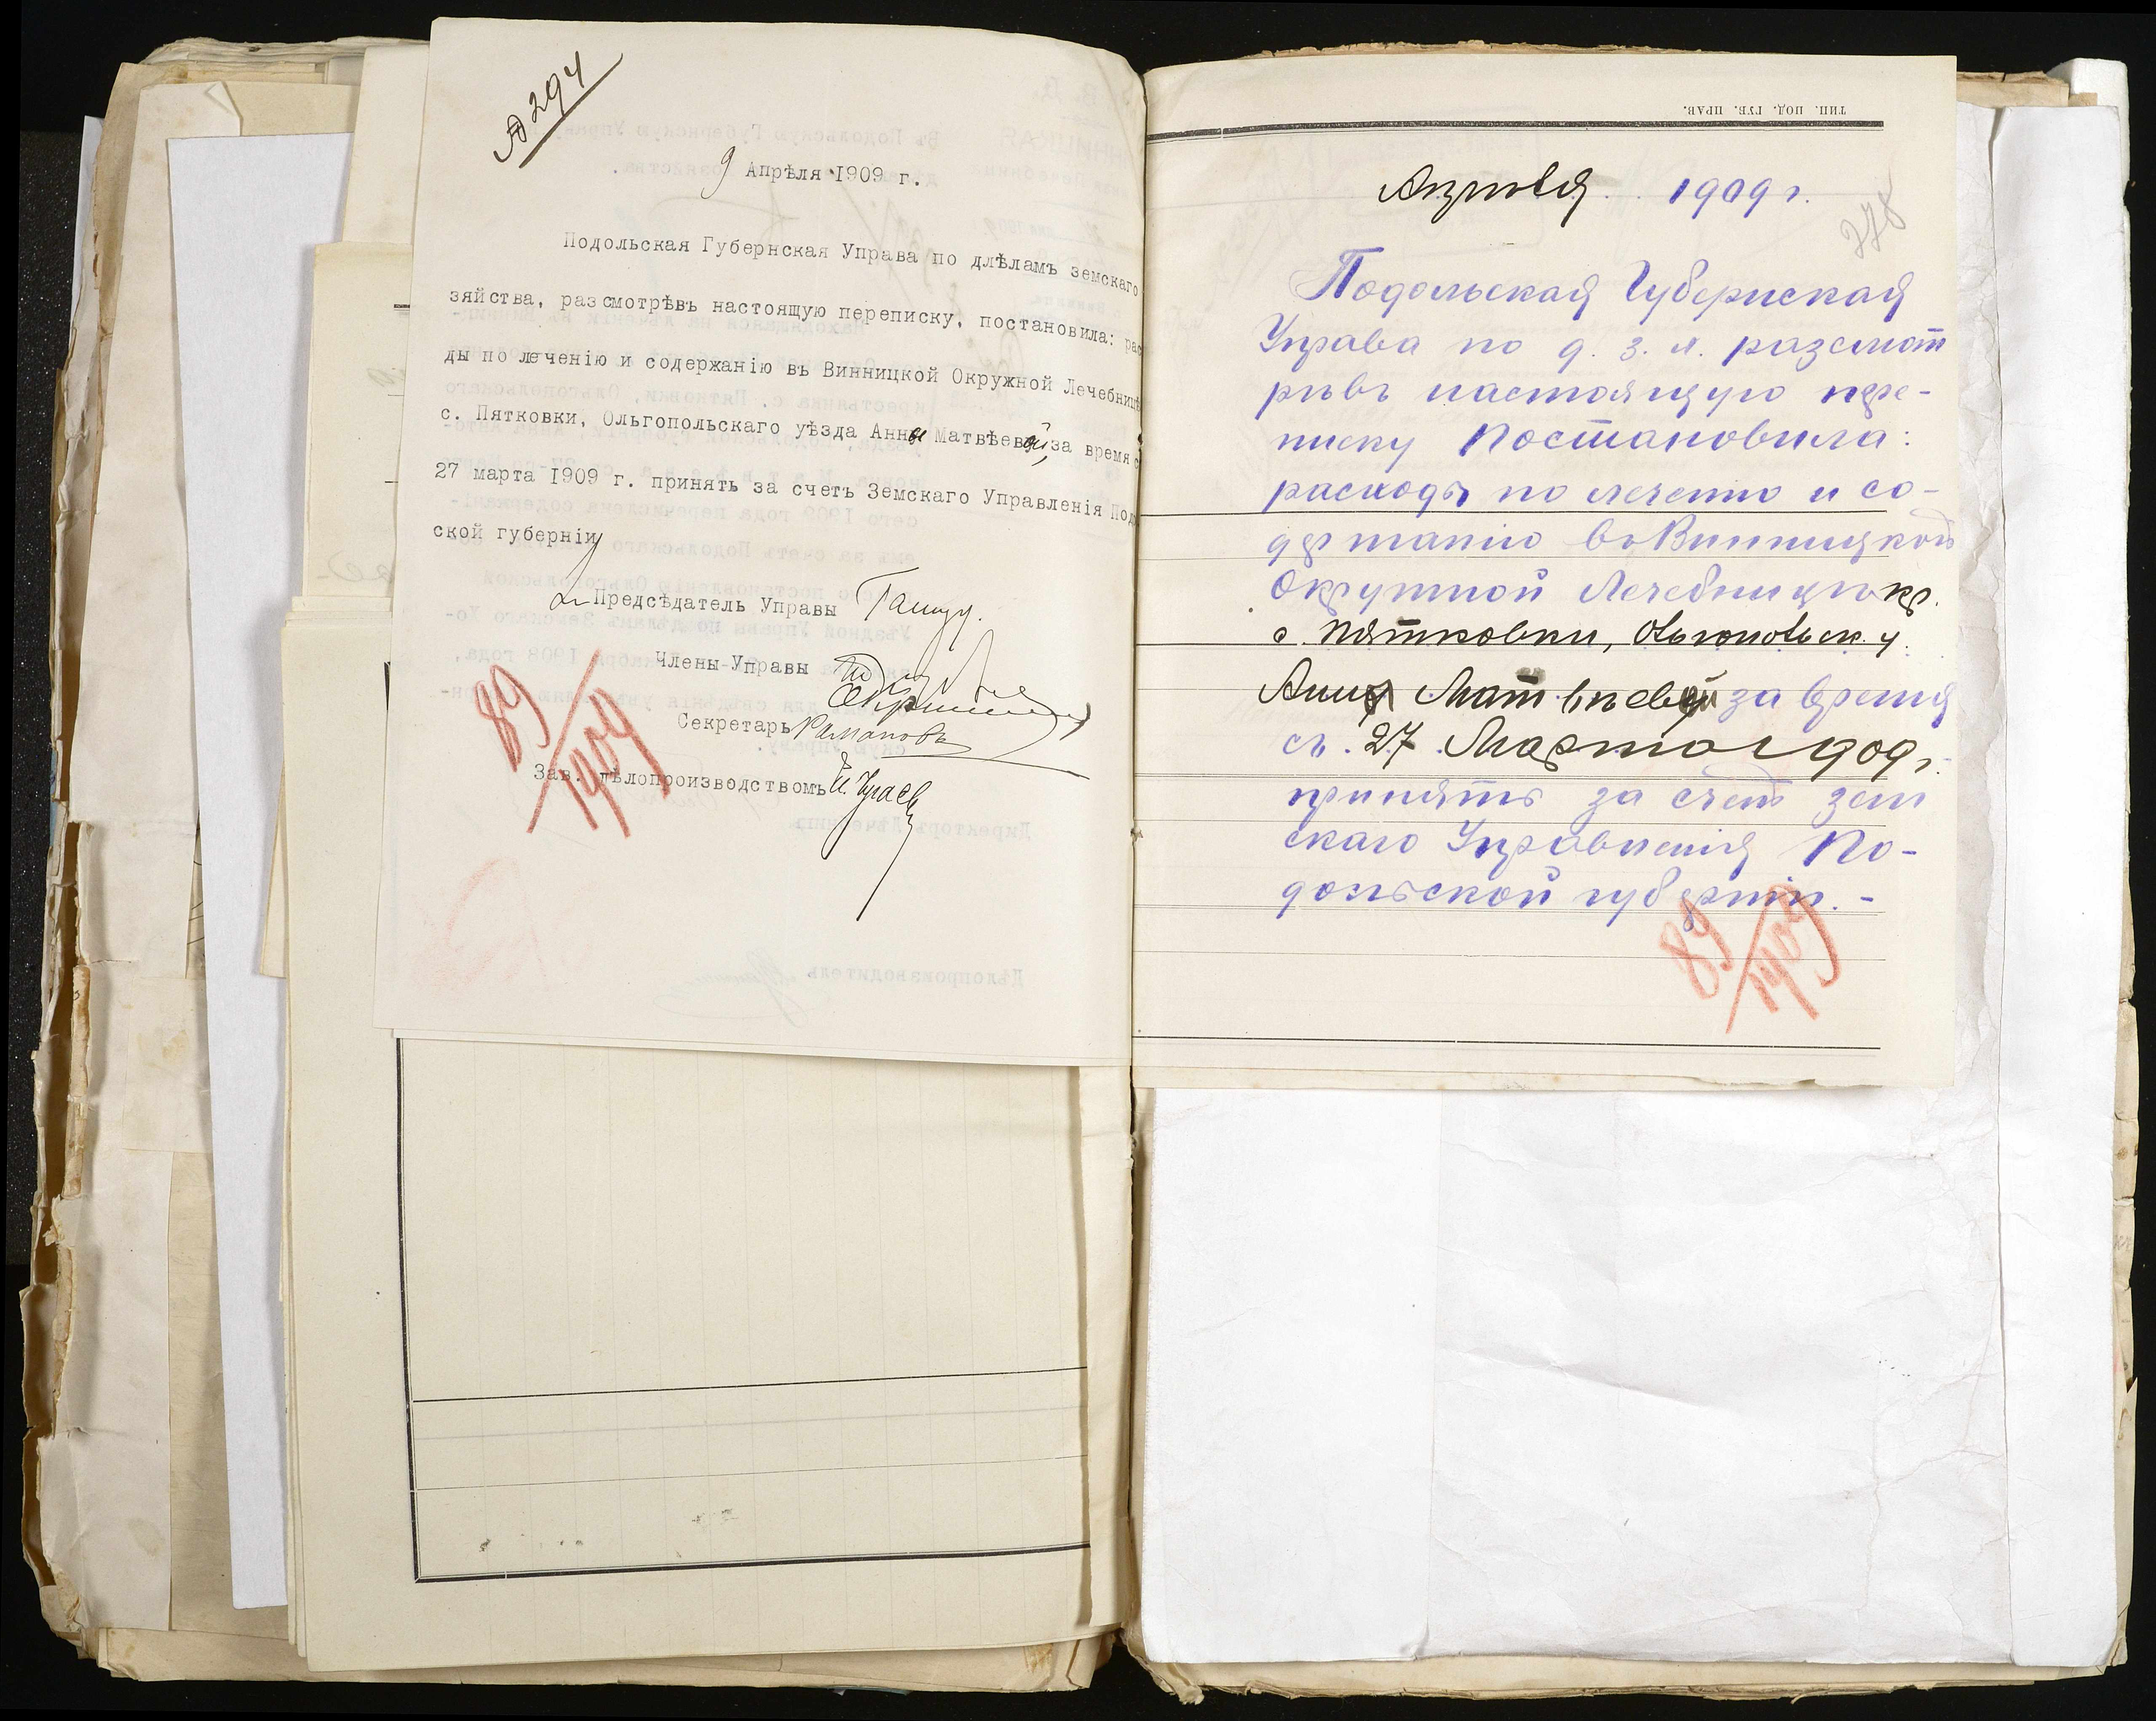 № 294
9 Апрѣля 1909 г.
Подольская Губернская Управа по длѣламъ земскаго
зяйства, разсмотрѣвъ настоящую переписку, постановила: рас
ды по леченію и содержанію въ Винницкой Окружной Лечебницѣ
с. Пятковки, Ольгопольскаго уѣзда Анны Матвѣевой, за время с
27 марта 1909 г. принять за счетъ Земскаго Управленія Под
ской губерніи
Предсѣдатель Управы
Члены Управы
Секретарь Романовъ
Зав. дѣлопроизводствомъ
89/1909
тип. под. губ. прав.
Апрѣля 1909 г.
278
Подольская Губернская
Управа по д. з. х. разсмот
рѣвъ настоящую пере-
писку постановила:
расходы по леченію и со-
держанію въ Винницкой
Окружной Лечебницѣ кр.
с. Пятковки, Ольгопольск. у.
Анны Матвѣевой за время
съ 27 Марта 1909 г.
принять за счетъ зем
скаго Управленія По-
дольской губерніи. -
89/1909